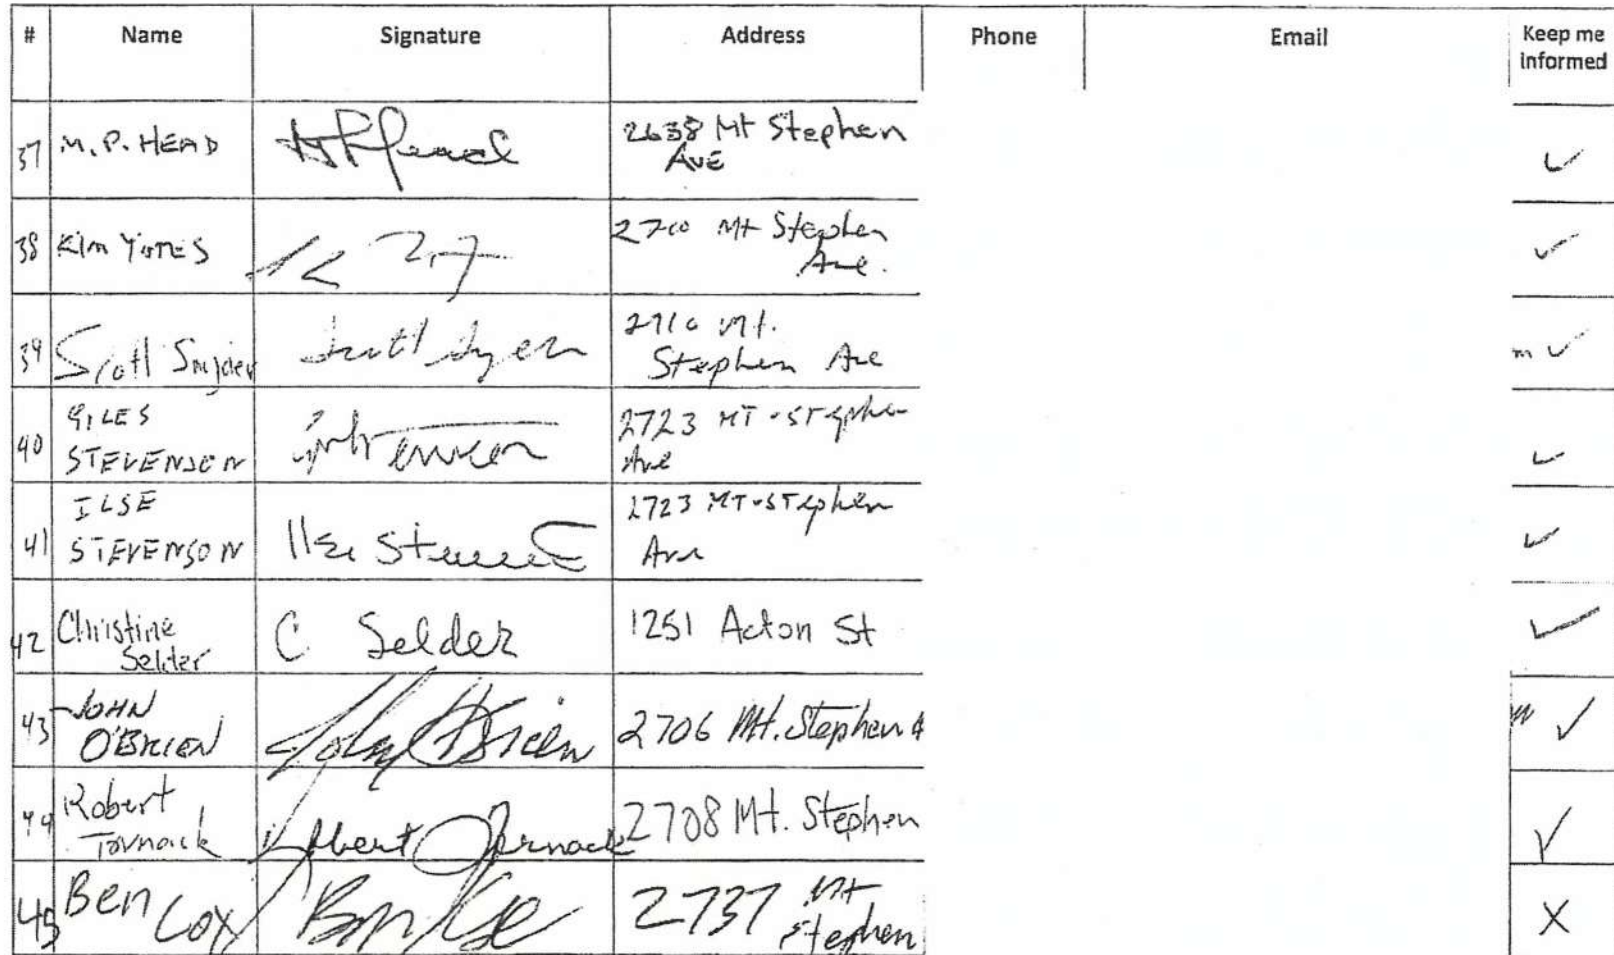 # Name Signature Address Phone Email Keep me informed
37 M.P. HEAD MPHead 2638 Mt Stephen AVE ✓
38 Kim YATES 2700 Mt Stephen Ave. ✓
39 Scott Snyder 2710 Mt. Stephen Ave m ✓
40 GILES STEVENSON 2723 MT-STephen Ave ✓
41 ILSE STEVENSON Ilse 2723 MT-STephen Ave ✓
42 Christine Selder C Selder 1251 Acton St ✓
43 JOHN O'BRIEN John O'Brien 2706 Mt. Stephen ✓
44 Robert Tornack Robert Tornack 2708 Mt. Stephen ✓
45 Ben Cox 2737 Mt Stephen X